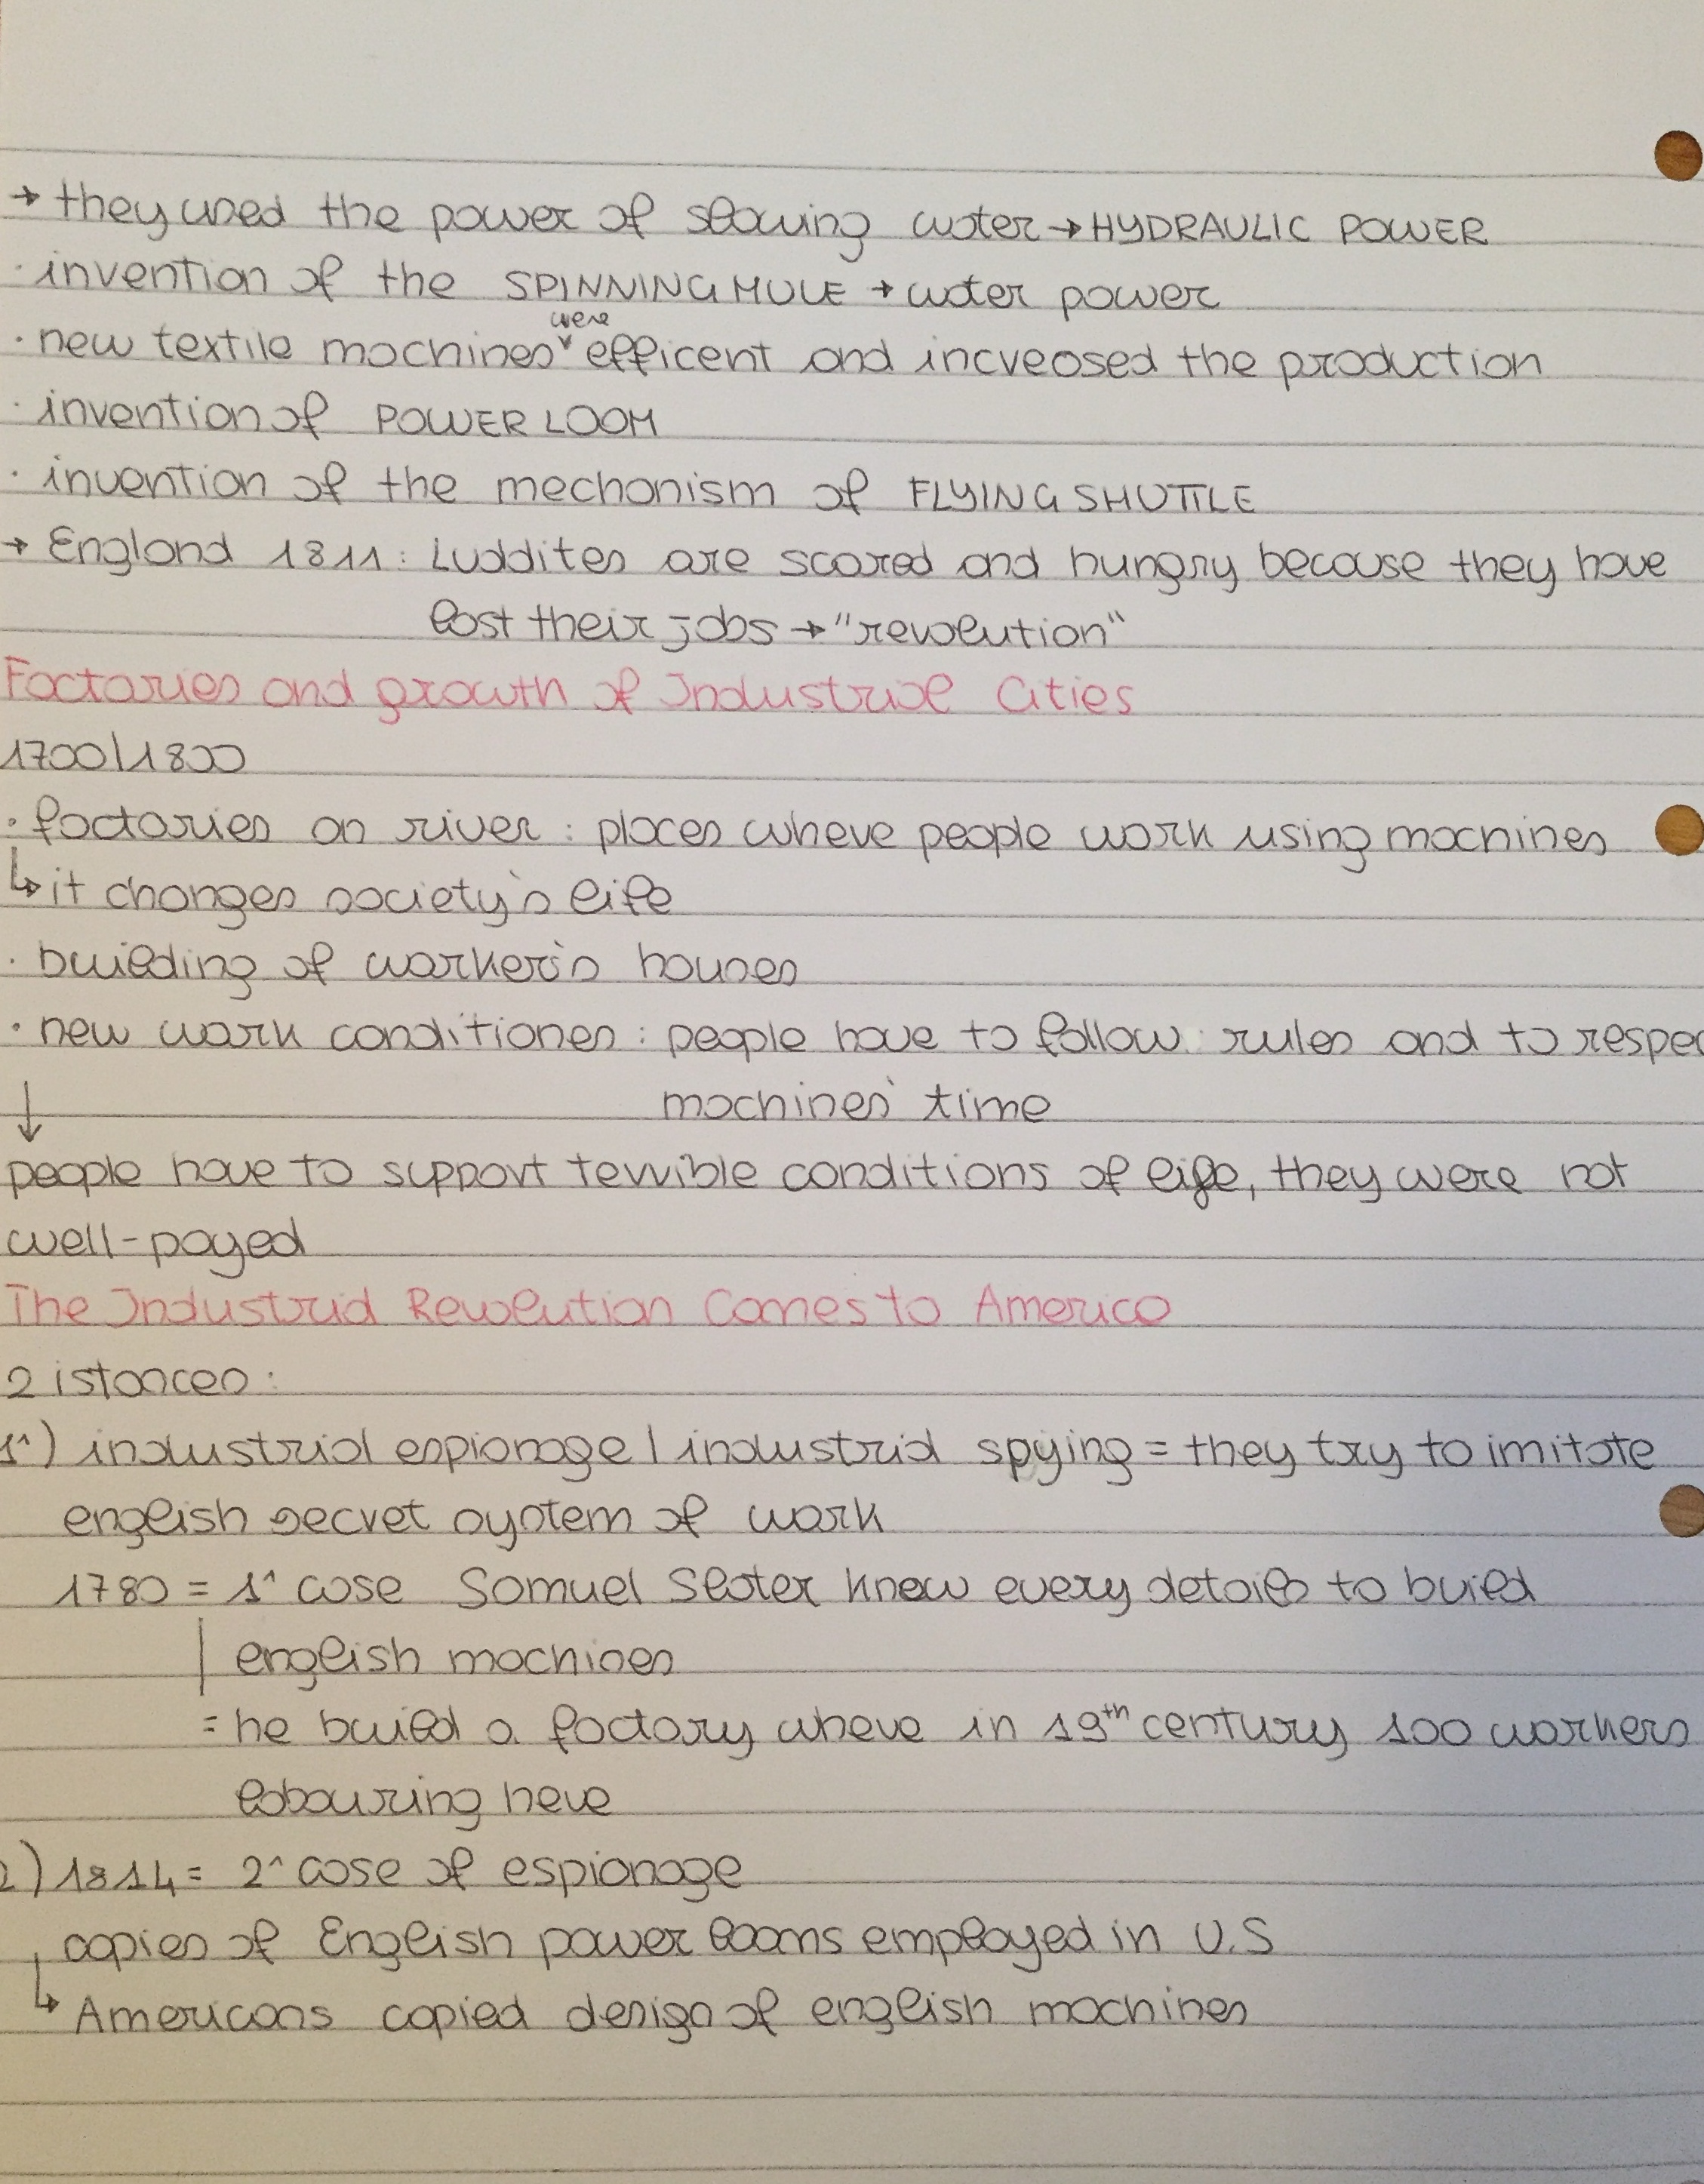 → they used the power of slowing water → HYDRAULIC POWER
· invention of the SPINNING MULE → water power
were
· new textile machines ˅ efficent and increased the production
· invention of POWER LOOM
· invention of the mechanism of FLYING SHUTTLE
→ England 1811: Luddites are scared and hungry because they have
lost their jobs → "revolution"
Factories and growth of Industrial Cities
1700/1800
· factories on river: places where people work using machines
↳ it changes society's life
· building of worker's houses
· new work conditiones: people have to follow rules and to respec
↓ machines' time
people have to support terrible conditions of life, they were not
well-payed
The Industrial Revolution Comes to America
2 istances:
1^) industrial espionage / industrial spying = they try to imitate
english secret system of work
1780 = 1^ case Samuel Slater knew every details to build
english machines
= he build a factory where in 19th century 100 workers
labouring here
2) 1814 = 2^ case of espionage
copies of English power looms employed in U.S
↳ Americans copied design of english machines